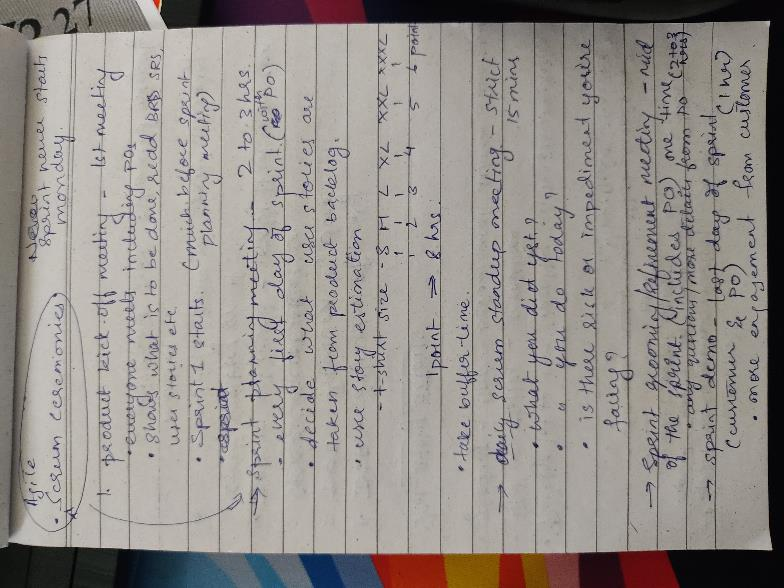 Agile
• Scrum ceremonies
Never
Sprint never starts
monday.
1. product kick-off meeting - 1st meeting
• everyone meets including POs
• shows what is to be done, read BRS SRS,
user stories etc.
• Sprint 1 starts. (much before sprint
planning meeting)
→ sprint planning meeting - 2 to 3 hrs.
• every first day of sprint. (with PO)
• decide what user stories are
taken from product backlog.
• use story estimation
- t-shirt size - S M L XL XXL XXXL
1 2 3 4 5 6 point
1 point ⇒ 8 hrs.
• take buffer-time.
→ daily scrum standup meeting - strict
15 mins
• what you did yst?
• " you do today?
• is there risk or impediment you're
facing?
→ Sprint grooming/Refinement meeting - mid
of the sprint. (includes PO) one time (2 to 3
hrs)
• any questions/more details from PO
→ sprint demo - last day of sprint (1 hr)
(customer & PO)
• more engagement from customer.
27